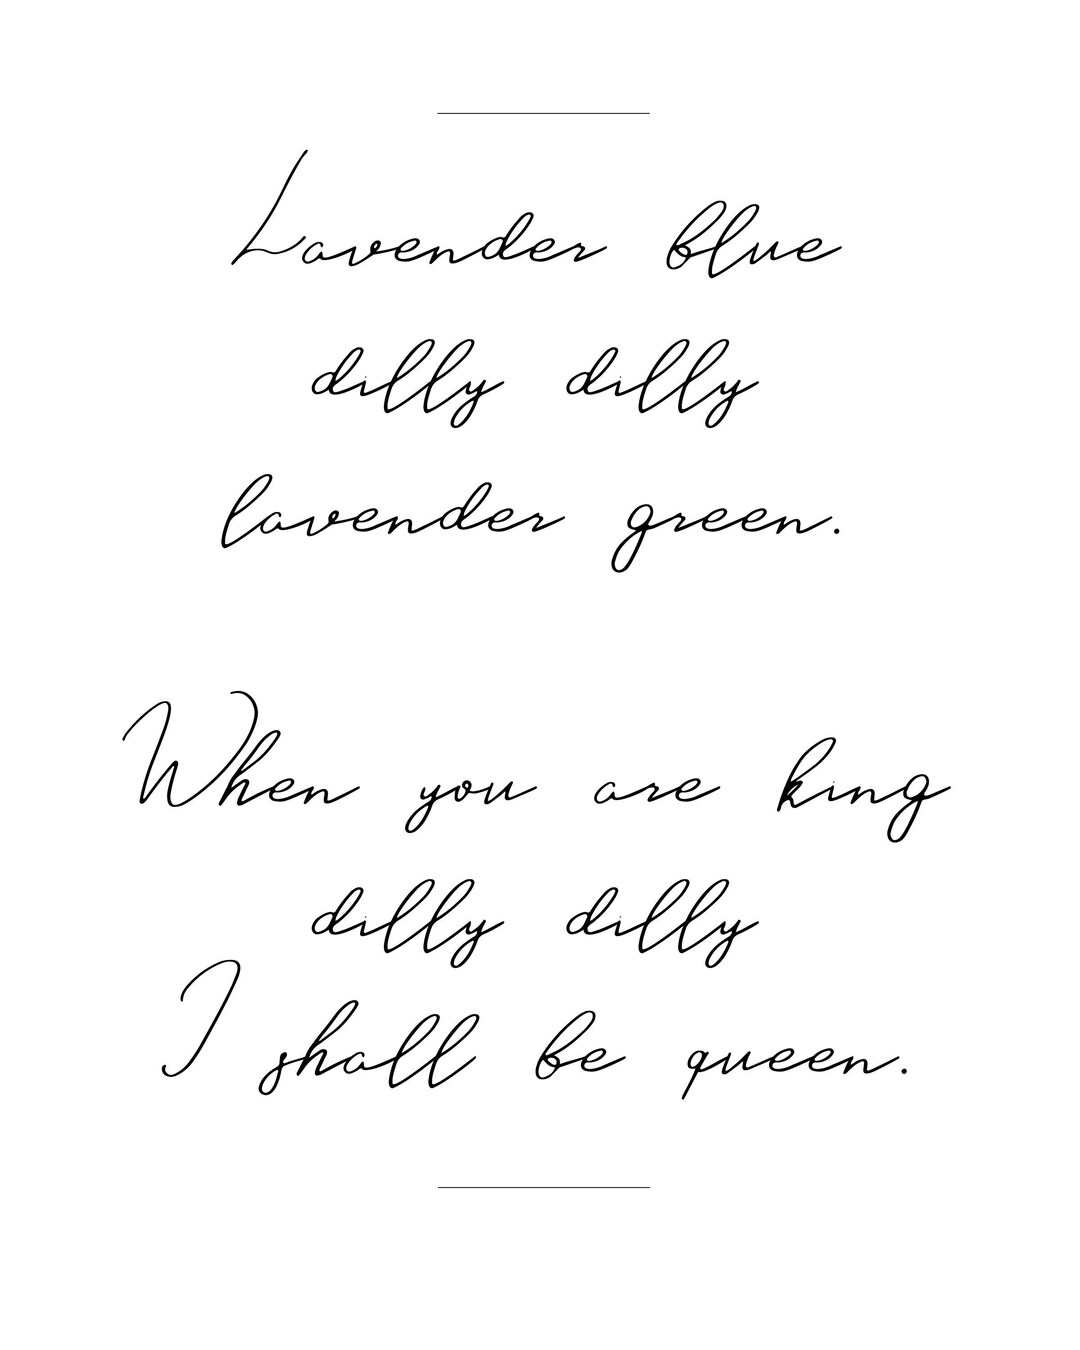 Lavender blue
dilly dilly
lavender green.
When you are king
dilly dilly
I shall be queen.